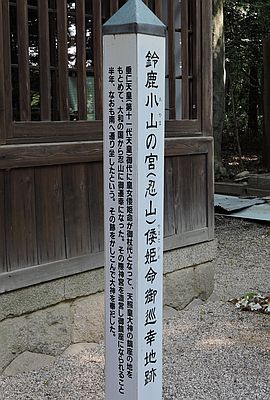 鈴鹿小山の宮(忍山)倭姫命御巡幸地跡
垂仁天皇(第十一代天皇)御代に皇女倭姫命が御杖代となって、天照皇大神の鎮座の地を
もとめて、大和の国から忍山に御遷幸になった。その際神宮を造営し御鎮座になられること
半年、なおも南へ遷り坐したという。その跡をかしこんで大神を奉祀した。